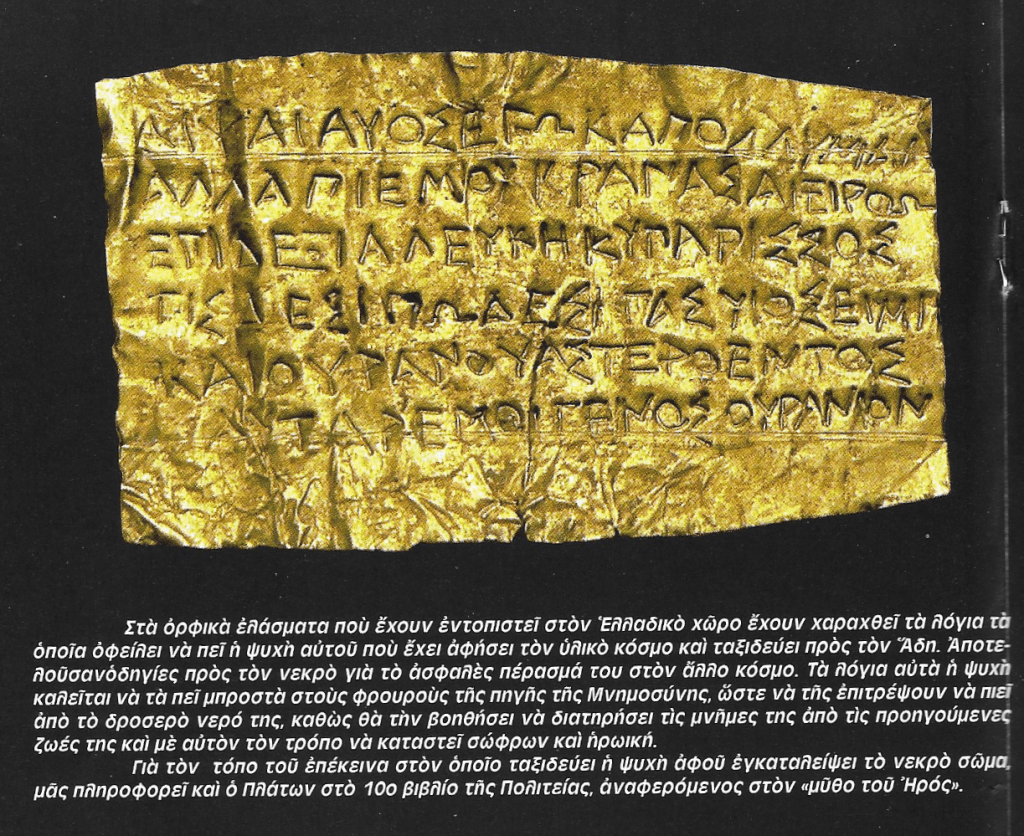 ΔΙΨΑΙΑΥΟΣΕΓΩΚΑΠΟΛΛ
ΑΛΛΑΠΙΕΜΟΥΚΡΑΝΑΣΑΙΕΙΡΩ
ΕΠΙΔΕΞΙΑΛΕΥΚΗΚΥΠΑΡΙΣΣΟΣ
ΤΙΣΔΕΣΙΠΩΔΕΣΙΓΑΣΥΙΟΣΕΙΜΙ
ΚΑΙΟΥΡΑΝΟΥΑΣΤΕΡΟΕΝΤΟΣ
ΑΥΤΑΡΕΜΟΙΓΕΝΟΣΟΥΡΑΝΙΟΝ
Στὰ ὀρφικὰ ἐλάσματα ποὺ ἔχουν ἐντοπιστεῖ στὸν Ἑλλαδικὸ χῶρο ἔχουν χαραχθεῖ τὰ λόγια τὰ
ὁποῖα ὀφείλει νὰ πεῖ ἡ ψυχὴ αὐτοῦ ποὺ ἔχει ἀφήσει τὸν ὑλικὸ κόσμο καὶ ταξιδεύει πρὸς τὸν Ἅδη. Ἀποτε-
λοῦσανὁδηγίες πρὸς τὸν νεκρὸ γιὰ τὸ ἀσφαλὲς πέρασμά του στὸν ἄλλο κόσμο. Τὰ λόγια αὐτὰ ἡ ψυχὴ
καλεῖται νὰ τὰ πεῖ μπροστὰ στοὺς φρουροὺς τῆς πηγῆς τῆς Μνημοσύνης, ὥστε νὰ τῆς ἐπιτρέψουν νὰ πιεῖ
ἀπὸ τὸ δροσερὸ νερό της, καθὼς θὰ τὴν βοηθήσει νὰ διατηρήσει τὶς μνῆμες της ἀπὸ τὶς προηγούμενες
ζωές της καὶ μὲ αὐτὸν τὸν τρόπο νὰ καταστεῖ σώφρων καὶ ἡρωική.
Γιὰ τὸν τόπο τοῦ ἐπέκεινα στὸν ὁποῖο ταξιδεύει ἡ ψυχὴ ἀφοῦ ἐγκαταλείψει τὸ νεκρὸ σῶμα,
μᾶς πληροφορεῖ καὶ ὁ Πλάτων στὸ 10ο βιβλίο τῆς Πολιτείας, ἀναφερόμενος στὸν «μῦθο τοῦ Ἠρός».